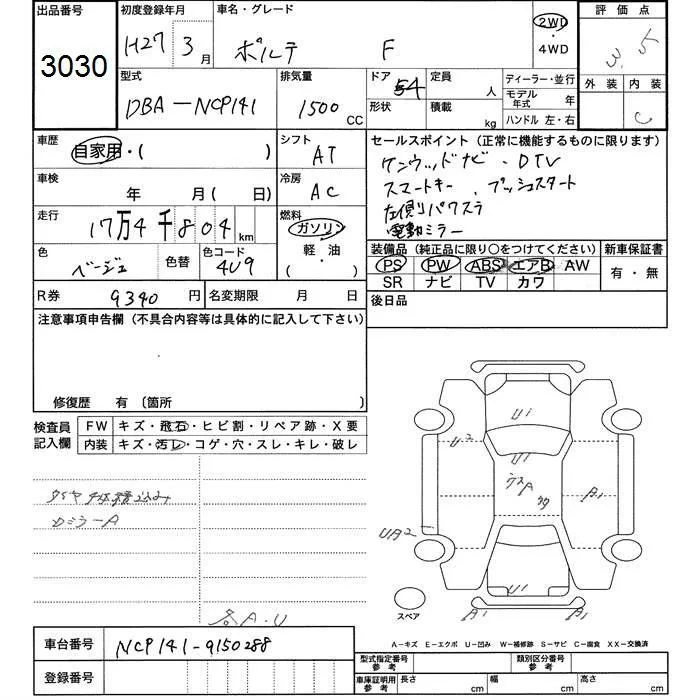 出品番号
3030
初度登録年月
H27年 3月
車名・グレード
ポルテ F
2WD
・4WD
評価点
3.5
外装 内装
C
型式
DBA-NCP141
排気量
1500 CC
ドア 54
形状
定員 人
積載 kg
ディーラー・並行
モデル年式 年
ハンドル 左・右
車歴
自家用・( )
シフト
AT
車検
年 月( 日)
冷房
AC
走行
17万4千804km
燃料
ガソリン
軽・油
・( )
色
ベージュ
色替
色コード
4U9
R券 9340円
名変期限 月 日
セールスポイント(正常に機能するものに限ります)
ケンウッドナビ・DTV
スマートキー、プッシュスタート
左側パワスラ
電動ミラー
装備品(純正品に限り○をつけてください)
PS PW ABS エアB AW
SR ナビ TV カワ
新車保証書
有・無
後日品
注意事項申告欄(不具合内容等は具体的に記入して下さい)
修復歴 有 〔箇所 〕
検査員
記入欄
FW キズ・飛石・ヒビ割・リペア跡・X要
内装 キズ・汚レ・コゲ・穴・スレ・キレ・破レ
ミラーA
A・U
U1
U2
U1
A
A1
UA2
U1
A1 A1
スペア
A-キズ E-エクボ U-凹み W-補修跡 S-サビ C-腐食 XX-交換済
車台番号 NCP141-9150288
登録番号
型式指定番号
参考
類別区分番号
参考
車庫証明用
参考
長さ cm
幅 cm
高さ cm